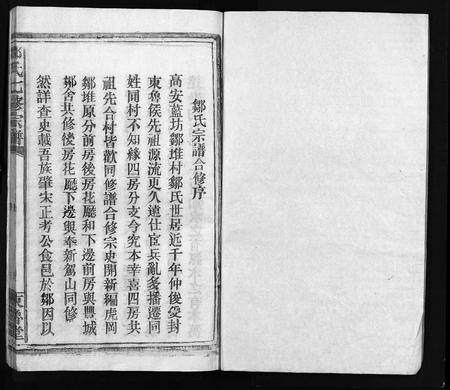 鄒氏宗譜合修序
高安藍坊鄒堆村鄒氏世居近千年仲俊受封
東魯侯先祖源流更久遠仕宦兵亂多播遷同
姓同村不知緣四房分支今究本幸喜四房共
祖先合村皆歡同修譜合修宗史開新編虎岡
鄒堆原分前房後房花廳和下邊前房與豐城
鄒舍共修後房花廳下邊與奉新駕山同修
然詳查史載吾族肇宋正考公食邑於鄒因以
鄒氏七修宗譜
東魯堂